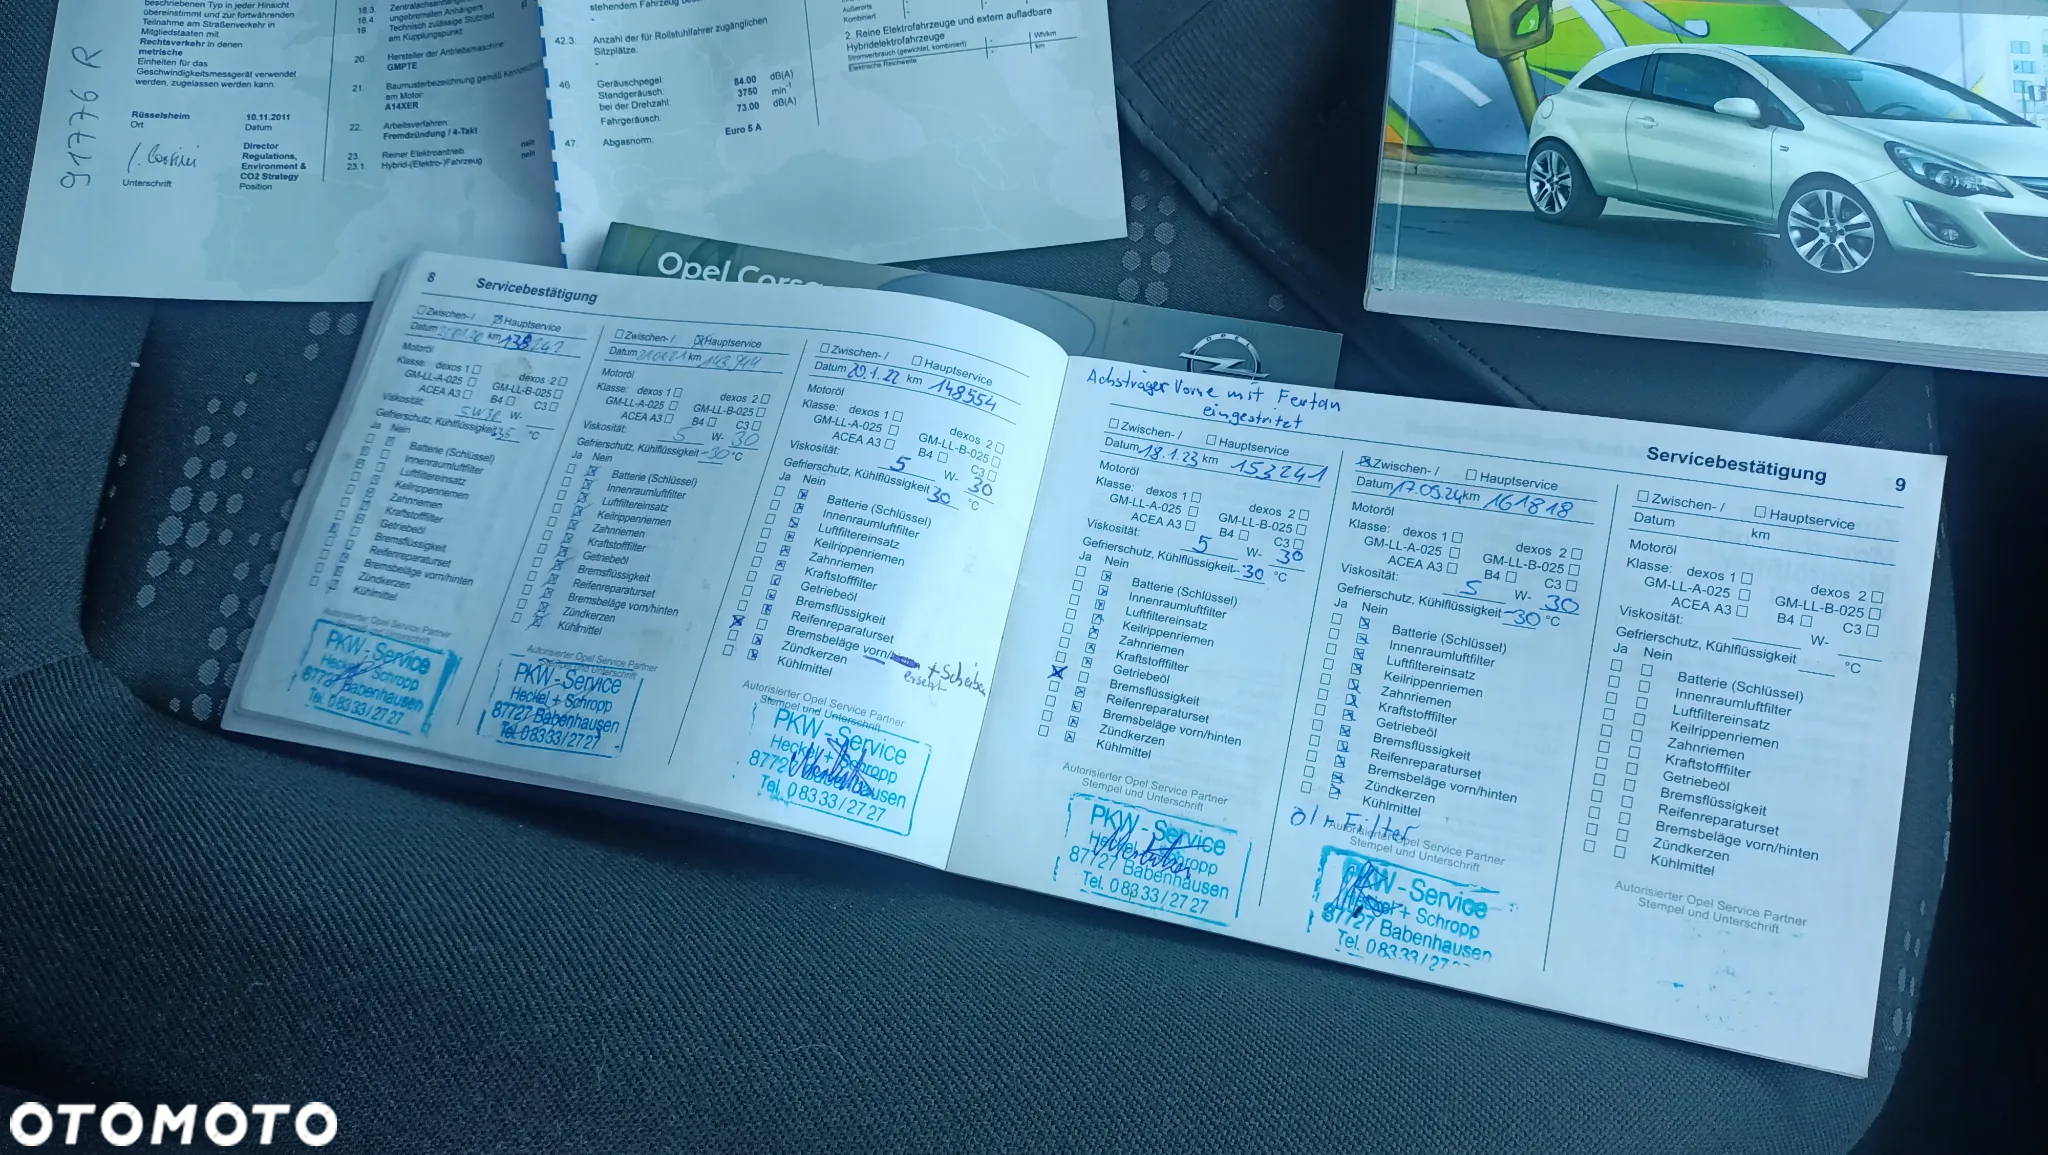 beschriebenen Typ in jeder Hinsicht
übereinstimmt und zur fortwährenden
Teilnahme am Straßenverkehr in
Mitgliedstaaten mit
Rechtsverkehr in denen
metrische
Einheiten für das
Geschwindigkeitsmessgerät verwendet
werden, zugelassen werden kann.
Rüsselsheim 10.11.2011
Ort Datum
Director
Regulations,
Environment &
CO2 Strategy
Unterschrift Position
91776 R
18.3.
18.4. ungebremsten Anhängers
19. Technisch zulässige Stützlast
am Kupplungspunkt
20. Hersteller der Antriebsmaschine
GMPTE
21. Baumusterbezeichnung gemäß
am Motor:
A14XER
22. Arbeitsverfahren
Fremdzündung / 4-Takt
23. Reiner Elektroantrieb nein
23.1. Hybrid-(Elektro-)Fahrzeug nein
stehendem Fahrzeug
42.3. Anzahl der für Rollstuhlfahrer zugänglichen
Sitzplätze:
-
46. Geräuschpegel:
Standgeräusch: 84.00 dB(A)
bei der Drehzahl: 3750 min-1
Fahrgeräusch: 73.00 dB(A)
47. Abgasnorm: Euro 5 A
Außerorts
Kombiniert
2. Reine Elektrofahrzeuge und extern aufladbare
Hybridelektrofahrzeuge
Stromverbrauch (gewichtet, kombiniert) - Wh/km
Elektrische Reichweite - km
Opel Corsa
OPEL
8 Servicebestätigung
Zwischen- / Hauptservice
Datum km
Motoröl
Klasse: dexos 1 dexos 2
GM-LL-A-025 GM-LL-B-025
ACEA A3 B4 C3
Viskosität: 5W30 W-
Gefrierschutz, Kühlflüssigkeit -35 °C
Ja Nein
Batterie (Schlüssel)
Innenraumluftfilter
Luftfiltereinsatz
Keilrippenriemen
Zahnriemen
Kraftstofffilter
Getriebeöl
Bremsflüssigkeit
Reifenreparaturset
Bremsbeläge vorn/hinten
Zündkerzen
Kühlmittel
Autorisierter Opel Service Partner
PKW-Service
Heckel + Schropp
87727 Babenhausen
Tel. 0 83 33 / 27 27
Zwischen- / Hauptservice
Datum km
Motoröl
Klasse: dexos 1 dexos 2
GM-LL-A-025 GM-LL-B-025
ACEA A3 B4 C3
Viskosität: 5 W- 30
Gefrierschutz, Kühlflüssigkeit -30 °C
Ja Nein
Batterie (Schlüssel)
Innenraumluftfilter
Luftfiltereinsatz
Keilrippenriemen
Zahnriemen
Kraftstofffilter
Getriebeöl
Bremsflüssigkeit
Reifenreparaturset
Bremsbeläge vorn/hinten
Zündkerzen
Kühlmittel
Autorisierter Opel Service Partner
Stempel und Unterschrift
PKW-Service
Heckel + Schropp
87727 Babenhausen
Tel. 0 83 33 / 27 27
Zwischen- / Hauptservice
Datum 20.1.22 km 148554
Motoröl
Klasse: dexos 1 dexos 2
GM-LL-A-025 GM-LL-B-025
ACEA A3 B4 C3
Viskosität: 5 W- 30
Gefrierschutz, Kühlflüssigkeit 30 °C
Ja Nein
Batterie (Schlüssel)
Innenraumluftfilter
Luftfiltereinsatz
Keilrippenriemen
Zahnriemen
Kraftstofffilter
Getriebeöl
Bremsflüssigkeit
Reifenreparaturset
Bremsbeläge vorn/ + Scheiben
Zündkerzen ersetzt
Kühlmittel
Autorisierter Opel Service Partner
Stempel und Unterschrift
PKW-Service
Heckel + Schropp
87727 Babenhausen
Tel. 0 83 33 / 27 27
Achsträger Vorne mit Fertan
eingestritzt
Servicebestätigung 9
Zwischen- / Hauptservice
Datum 18.1.23 km 153241
Motoröl
Klasse: dexos 1 dexos 2
GM-LL-A-025 GM-LL-B-025
ACEA A3 B4 C3
Viskosität: 5 W- 30
Gefrierschutz, Kühlflüssigkeit -30 °C
Ja Nein
Batterie (Schlüssel)
Innenraumluftfilter
Luftfiltereinsatz
Keilrippenriemen
Zahnriemen
Kraftstofffilter
Getriebeöl
Bremsflüssigkeit
Reifenreparaturset
Bremsbeläge vorn/hinten
Zündkerzen
Kühlmittel
Autorisierter Opel Service Partner
Stempel und Unterschrift
PKW-Service
Heckel + Schropp
87727 Babenhausen
Tel. 0 83 33 / 27 27
Zwischen- / Hauptservice
Datum 17.09.24 km 161818
Motoröl
Klasse: dexos 1 dexos 2
GM-LL-A-025 GM-LL-B-025
ACEA A3 B4 C3
Viskosität: 5 W- 30
Gefrierschutz, Kühlflüssigkeit -30 °C
Ja Nein
Batterie (Schlüssel)
Innenraumluftfilter
Luftfiltereinsatz
Keilrippenriemen
Zahnriemen
Kraftstofffilter
Getriebeöl
Bremsflüssigkeit
Reifenreparaturset
Bremsbeläge vorn/hinten
Zündkerzen
Kühlmittel
Öl + Filter
Autorisierter Opel Service Partner
Stempel und Unterschrift
PKW-Service
Heckel + Schropp
87727 Babenhausen
Tel. 0 83 33 / 27
Zwischen- / Hauptservice
Datum km
Motoröl
Klasse: dexos 1 dexos 2
GM-LL-A-025 GM-LL-B-025
ACEA A3 B4 C3
Viskosität: W-
Gefrierschutz, Kühlflüssigkeit °C
Ja Nein
Batterie (Schlüssel)
Innenraumluftfilter
Luftfiltereinsatz
Keilrippenriemen
Zahnriemen
Kraftstofffilter
Getriebeöl
Bremsflüssigkeit
Reifenreparaturset
Bremsbeläge vorn/hinten
Zündkerzen
Kühlmittel
Autorisierter Opel Service Partner
Stempel und Unterschrift
OTOMOTO